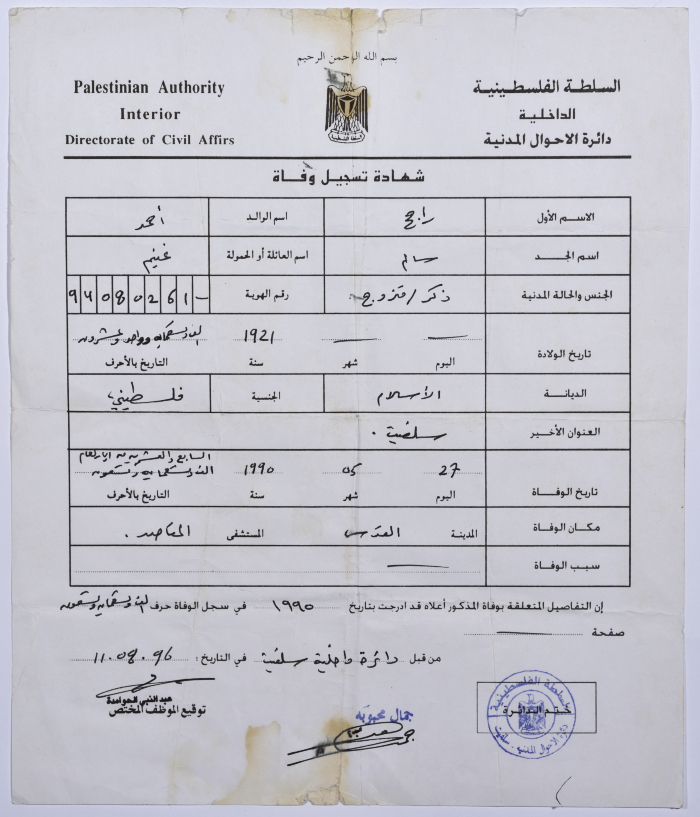 بسم الله الرحمن الرحيم
Palestinian Authority
Interior
Directorate of Civil Affirs
السلطة الفلسطينية
الداخلية
دائرة الاحوال المدنية
شهادة تسجيل وفاة
الاسم الأول راجح اسم الوالد أحمد
اسم الجد سالم اسم العائلة أو الحمولة غنيم
الجنس والحالة المدنية ذكر/متزوج رقم الهوية 94080261-
تاريخ الولادة — اليوم — شهر 1921 سنة الف وتسعمايه وواحد وعشرون التاريخ بالأحرف
الديانة الأسلام الجنسية فلسطيني
العنوان الأخير سلفيت .
تاريخ الوفاة 27 اليوم 05 شهر 1990 سنة السابع والعشرين من ايار لعام الف وتسعمايه وتسعون التاريخ بالأحرف
مكان الوفاة المدينة القدس المستشفى المقاصد .
سبب الوفاة —
إن التفاصيل المتعلقة بوفاة المذكور أعلاه قد ادرجت بتاريخ 1990 في سجل الوفاة حرف الف وتسعمايه وتسعون
صفحة —
من قبل دائرة داخلية سلفيت في التاريخ : 11.08.96
عبد النبي الحوامدة
توقيع الموظف المختص
جمال محبوبه
ختم الدائرة
السلطة الفلسطينية
دائرة الاحوال المدنية . سلفيت